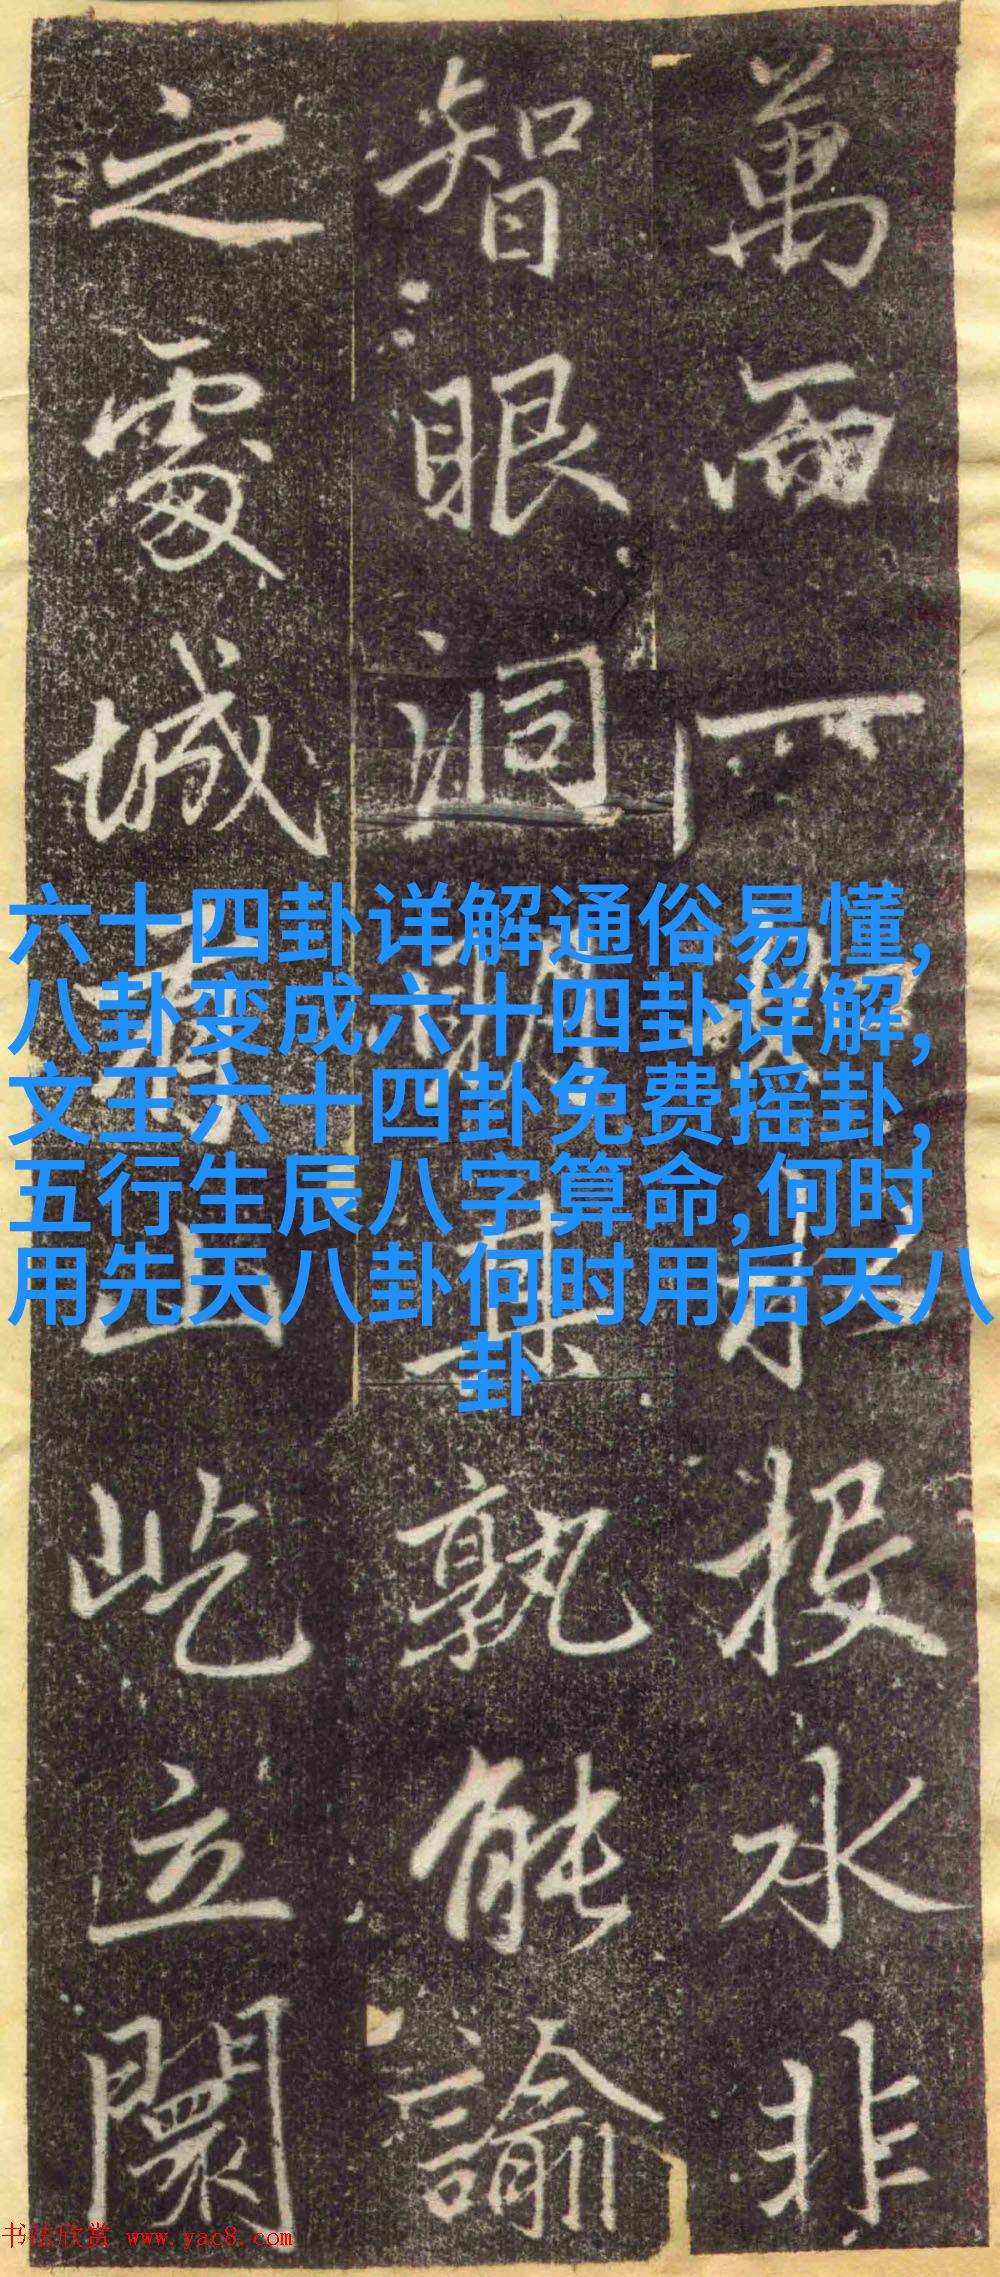 萬兩一投水非
智眼洞孰能諭
之處城山屹立闤
六十四卦详解通俗易懂,
八卦变成六十四卦详解,
文王六十四卦免费摇卦,
五行生辰八字算命,何时
用先天八卦何时用后天八
卦
书法欣赏 www.yac8.com